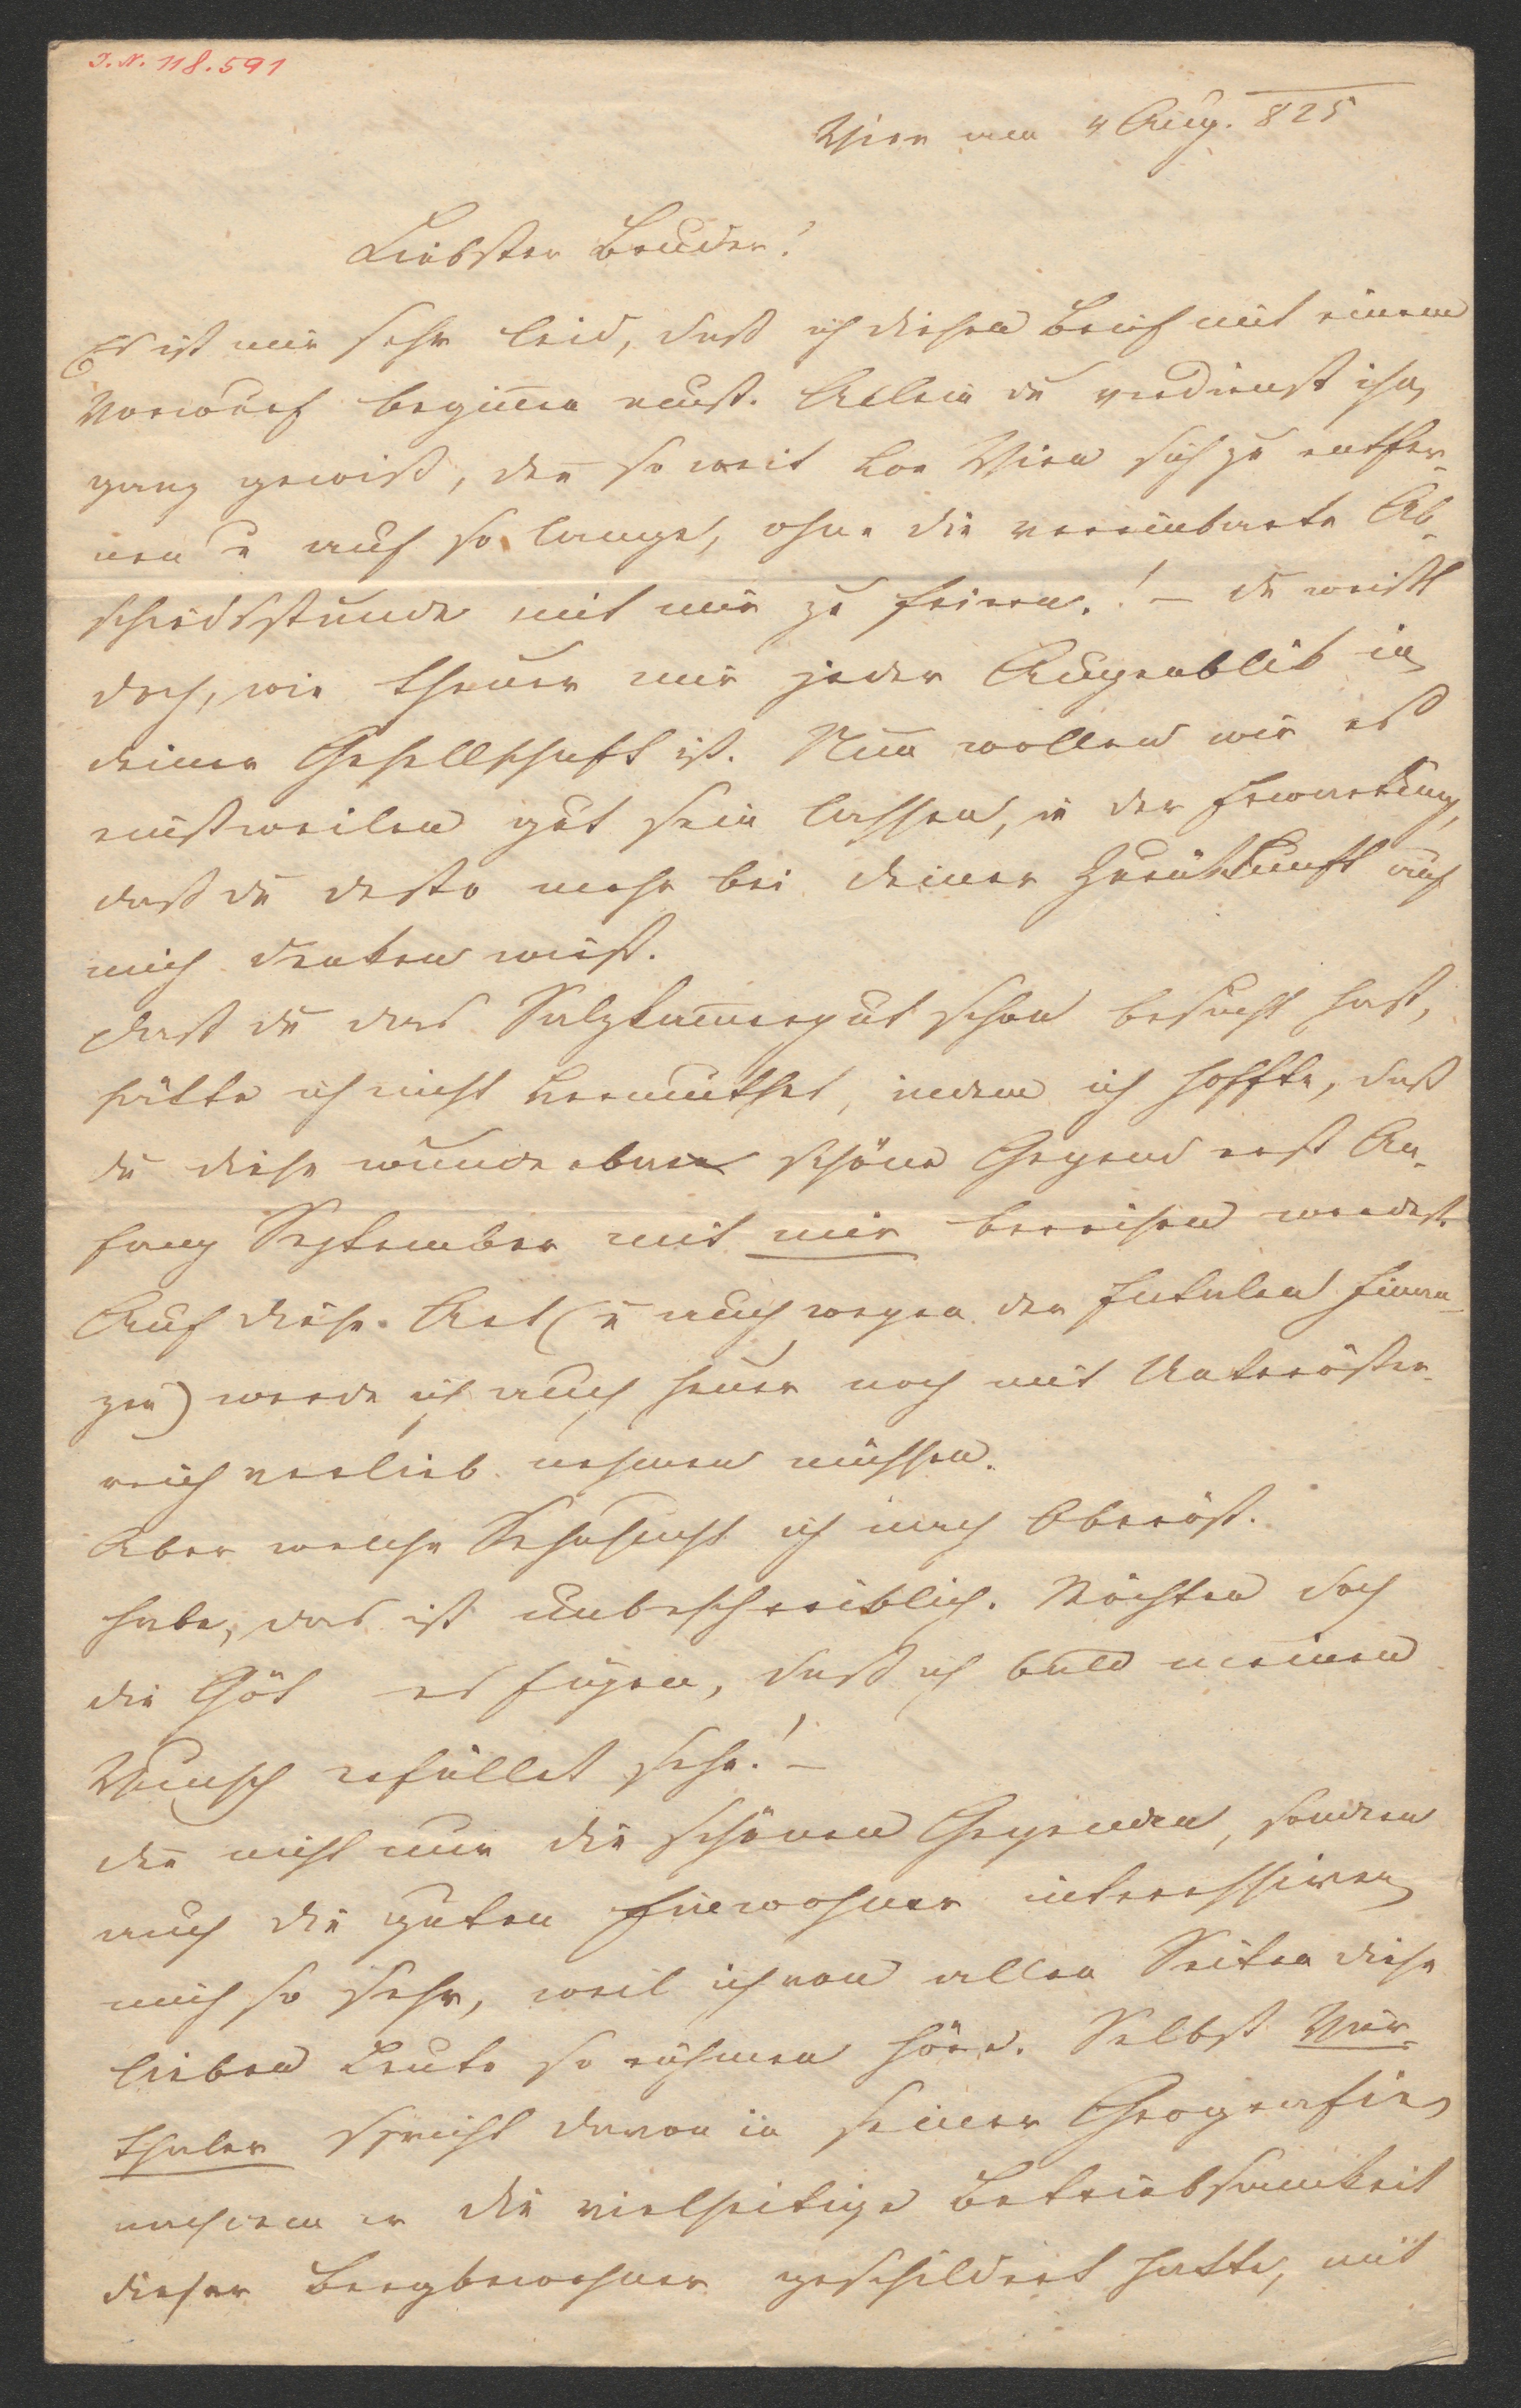 I. N. 118.591
Wien am 4 Aug. 825
Liebster Bruder!
Es ist mir sehr leid, daß ich diesen Brief mit einem
Vorwurf beginnen muß. Allein du verdienst ihn
ganz gewiß, den̅ so weit von Wien sich zu entfer-
nen u auf so lange, ohne die vereinbarte Ab-
schiedsstunde mit mir zu feiern.! – du weißt
doch, wie theuer mir jeder Augenblik in
deiner Gesellschaft ist. Nun wollen wir es
einstweilen gut sein lassen, in der Erwartung,
daß du desto mehr bei deiner Zurükkunft auf
mich denken wirst.
Daß du das Salzkam̅ergut schon besucht hast,
hätte ich nicht vermuthet, indem ich hoffte, daß
du diese wunderbar schöne Gegend erst An-
fang September mit mir bereisen werdest.
Auf diese Art (u auch wegen der fatalen Finan-
zen) werde ich auch heuer noch mit Unteröster-
reich verlieb nehmen müssen.
Aber welche Sehnsucht ich nach Oberöst.
habe, das ist unbeschreiblich. Möchten doch
die Göt es fügen, daß ich bald meinen
Wunsch erfüllet sehe! –
den̅ nicht nur die schönen Gegenden, sondern
auch die guten Einwohner interessiren
mich so sehr, weil ich von allen Seiten diese
lieben Leute so rühmen höre. Selbst Vier-
thaler spricht davon in seiner Geografie,
nachdem er die vielseitige Betriebsamkeit
dieser Bergbewohner geschildert hatte, mit